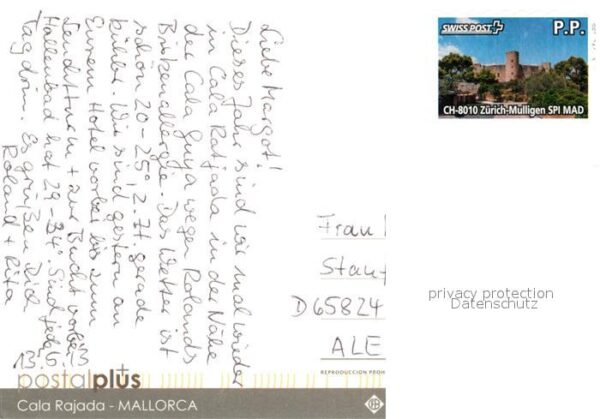 Liebe Margot!
Dieses Jahr sind wir mal wieder
in Cala Ratjada in der Nähe
der Cala Guya wegen Rolands
Birkenallergie. Das Wetter ist
schön 20-25°, z.Zt. gerade
kühler. Wir sind gestern an
Eurem Hotel vorbei bis zum
+ zur Bucht vorbei
Hallenbad hat 29-34°. Sind jeden
Tag drin. Es grüßen Dich
Roland + Rita
SWISS POST P.P.
CH-8010 Zürich-Mülligen SPI MAD
Frau
D 65824
privacy protection
Datenschutz
REPRODUCCION PROH
postalplus
Cala Rajada - MALLORCA